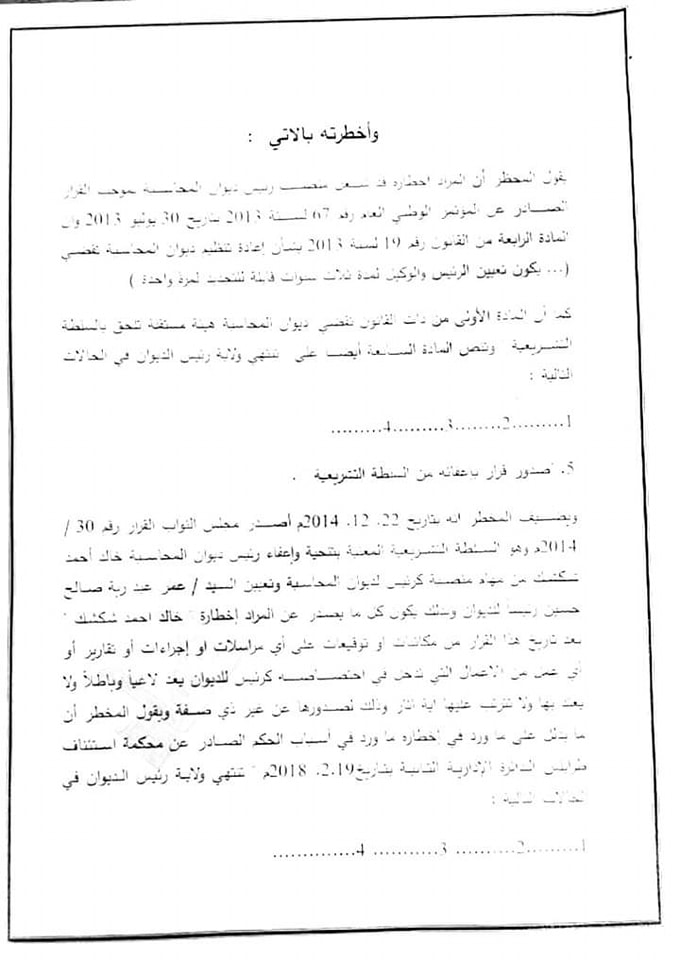 وأخطرته بالاتي :
يقول المخطر أن المراد اخطاره قد شغل منصب رئيس ديوان المحاسبة بموجب القرار
الصادر عن المؤتمر الوطني العام رقم 67 لسنة 2013 بتاريخ 30 يوليو 2013 وان
المادة الرابعة من القانون رقم 19 لسنة 2013 بشأن إعادة تنظيم ديوان المحاسبة تقضي
(... يكون تعيين الرئيس والوكيل لمدة ثلاث سنوات قابلة للتجديد لمرة واحدة )
كما أن المادة الأولى من ذات القانون تقضي ديوان المحاسبة هيئة مستقلة تلحق بالسلطة
التشريعية وتنص المادة السابعة أيضا على تنتهي ولاية رئيس الديوان في الحالات
التالية :
1.........2........3.........4.........
5. صدور قرار بإعفائه من السلطة التشريعية .
ويضيف المخطر انه بتاريخ 22. 12. 2014م أصدر مجلس النواب القرار رقم 30 /
2014م وهو السلطة التشريعية المعنية بتنحية وإعفاء رئيس ديوان المحاسبة خالد أحمد
شكشك من مهام منصبة كرئيس لديوان المحاسبة وتعيين السيد / عمر عبد ربة صالح
حسين رئيساً للديوان وبذلك يكون كل ما يصدر عن المراد إخطارة " خالد احمد شكشك "
بعد تاريخ هذا القرار من مكاتبات او توقيعات على أي مراسلات او إجراءات أو تقارير أو
أي عمل من الاعمال التي تدخل في اختصاصه كرئيس للديوان يعد لاغياً وباطلاً ولا
يعتد بها ولا تترتب عليها اية اثار وذلك لصدورها عن غير ذي صفة ويقول المخطر أن
ما يدلل على ما ورد في إخطاره ما ورد في أسباب الحكم الصادر عن محكمة استئناف
طرابلس الدائرة الإدارية الثانية بتاريخ 2.19. 2018م " تنتهي ولاية رئيس الديوان في
الحالات التالية :
1.........2.......... 3........... 4..............